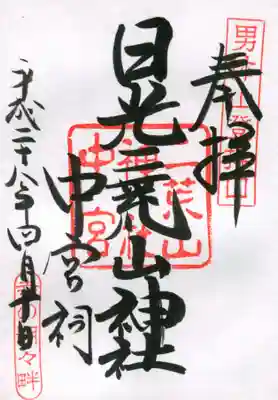 男体山登拝口
奉拝
日光二荒山神社
中宮祠
二荒山
神社
中宮
平成二十八年四月日
湖々畔